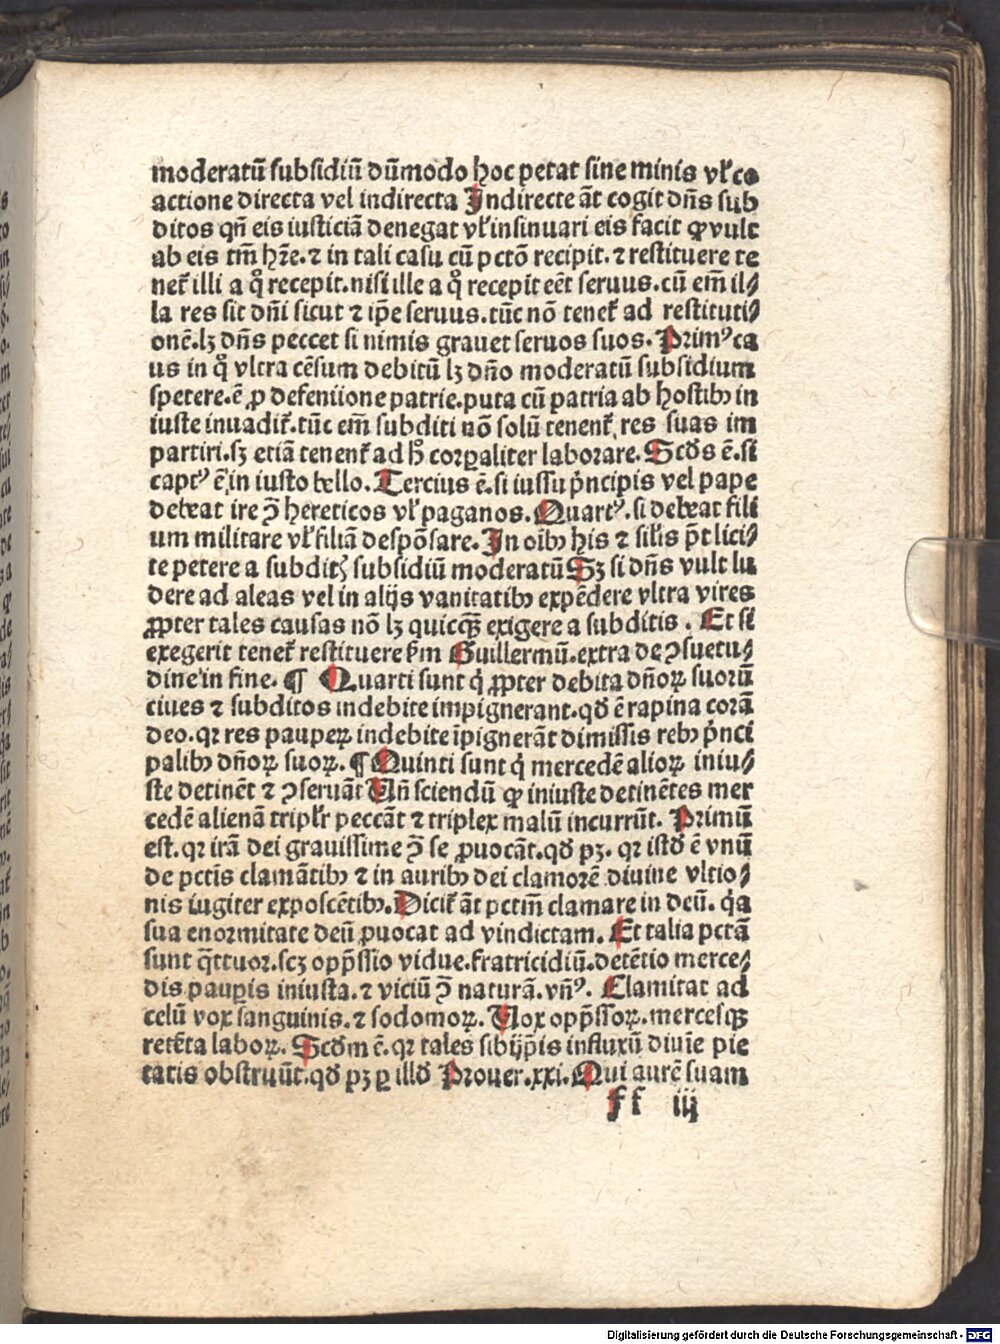 moderatū subsidiū dūmodo hoc petat sine minis vl̓ co
actione directa vel indirecta Indirecte āt cogit dn̄s sub
ditos qn̄ eis iusticiā denegat vl̓ insinuari eis facit ꝙ vult
ab eis tm̄ hr̄e. ⁊ in tali casu cū pctō recipit. ⁊ restituere te
net̄ illi a q̊ recepit. nisi ille a q̊ recepit eēt seruus. cū em̄ il⸗
la res sit dn̄i sicut ⁊ ip̄e seruus. tūc nō tenet̄ ad restituti⸗
onē. lꝫ dn̄s peccet si nimis grauet seruos suos. Primꝰ ca
us in q̊ vltra cēsum debitū lꝫ dn̄o moderatū subsidium
spetere. ē ꝓ defensione patrie. puta cū patria ab hostibꝫ in
iuste inuadit̄. tūc em̄ subditi nō solū tenent̄ res suas im
partiri. sꝫ etiā tenent̄ ad h̊ corꝑaliter laborare. Scd̄s ē. si
captꝰ ē in iusto bello. Tercius ē. si iussu pͥncipis vel pape
debeat ire ꝯ̄ hereticos vl̓ paganos. Quartꝰ. si debeat fili
um militare vl̓ filiā despōsare. In oībꝫ his ⁊ sil̓is pt̄ lici⸗
te petere a subditꝭ subsidiū moderatū Sꝫ si dn̄s vult lu
dere ad aleas vel in alijs vanitatibꝫ expēdere vltra vires
ꝓpter tales causas nō lꝫ quicꝗ̄ exigere a subditis. Et si
exegerit tenet̄ restituere ẜm Guillermū. extra de ꝯsuetu⸗
dine in fine. ¶ Quarti sunt qͥ ꝓpter debita dn̄oꝝ suorū
ciues ⁊ subditos indebite impignerant. qd̄ ē rapina corā
deo. qꝛ res pauperꝝ indebite īpignerāt dimissis rebꝫ pͥnci
palibꝫ dn̄oꝝ suoꝝ. ¶ Quinti sunt qͥ mercedē alioꝝ iniu⸗
ste detinēt ⁊ ꝯseruāt Vn̄ sciendū ꝙ iniuste detinētes mer
cedē alienā tripl̓r peccāt ⁊ triplex malū incurrūt. Primū
est. qꝛ irā dei grauissime ꝯ̄ se ꝓuocāt. qd̄ pꝫ. qꝛ istd̄ ē vnū
de pctīs clamātibꝫ ⁊ in auribꝫ dei clamorē diuine vltio⸗
nis iugiter exposcētibꝫ. Dicit̄ āt pctm̄ clamare in deū. qͣ
sua enormitate deū ꝓuocat ad vindictam. Et talia pctā
sunt qͣttuor. scꝫ opp̄ssio vidue. fratricidiū. detētio merce⸗
dis pauꝑis iniusta. ⁊ viciū ꝯ̄ naturā. vn̄ꝰ. Clamitat ad
celū vox sanguinis. ⁊ sodomoꝝ. Vox opp̄ssoꝝ. mercesꝗ
retēta laboꝝ. Scd̄m ē. qꝛ tales sibijp̄is influxū diuīe pie
tatis obstruūt. qd̄ pꝫ ꝑ illd̄ Prouer. xxi. Qui aurē suam
ff iij
Digitalisierung gefördert durch die Deutsche Forschungsgemeinschaft - DFG